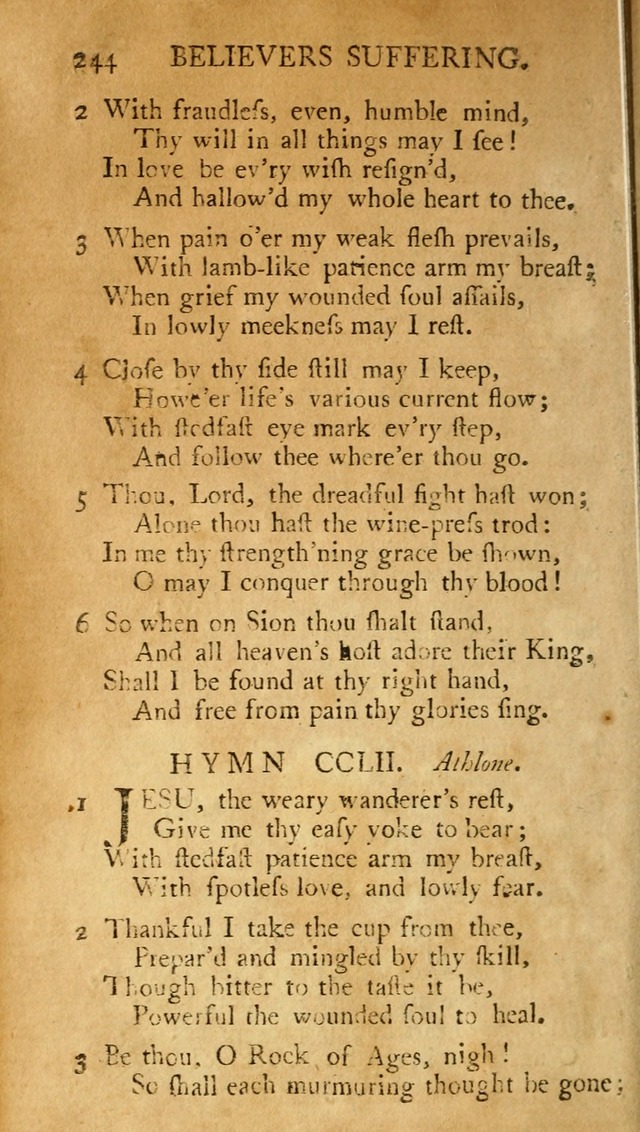 244 BELIEVERS SUFFERING.
2 With fraudleſs, even, humble mind,
Thy will in all things may I ſee!
In love be ev'ry wiſh reſign'd,
And hallow'd my whole heart to thee.
3 When pain o'er my weak fleſh prevails,
With lamb-like patience arm my breaſt;
When grief my wounded ſoul aſſails,
In lowly meekneſs may I reſt.
4 Cloſe by thy ſide ſtill may I keep,
Howe'er life's various current flow;
With ſtedfaſt eye mark ev'ry ſtep,
And follow thee where'er thou go.
5 Thou, Lord, the dreadful fight haſt won;
Alone thou haſt the wine-preſs trod:
In me thy ſtrength'ning grace be ſhown,
O may I conquer through thy blood!
6 So when on Sion thou ſhalt ſtand,
And all heaven's hoſt adore their King,
Shall I be found at thy right hand,
And free from pain thy glories ſing.
HYMN CCLII. Athlone.
1 JESU, the weary wanderer's reſt,
Give me thy eaſy yoke to bear;
With ſtedfaſt patience arm my breaſt,
With ſpotleſs love, and lowly fear.
2 Thankful I take the cup from thee,
Prepar'd and mingled by thy ſkill,
Though bitter to the taſte it be,
Powerful the wounded ſoul to heal.
3 Be thou, O Rock of Ages, nigh!
So ſhall each murmuring thought be gone;